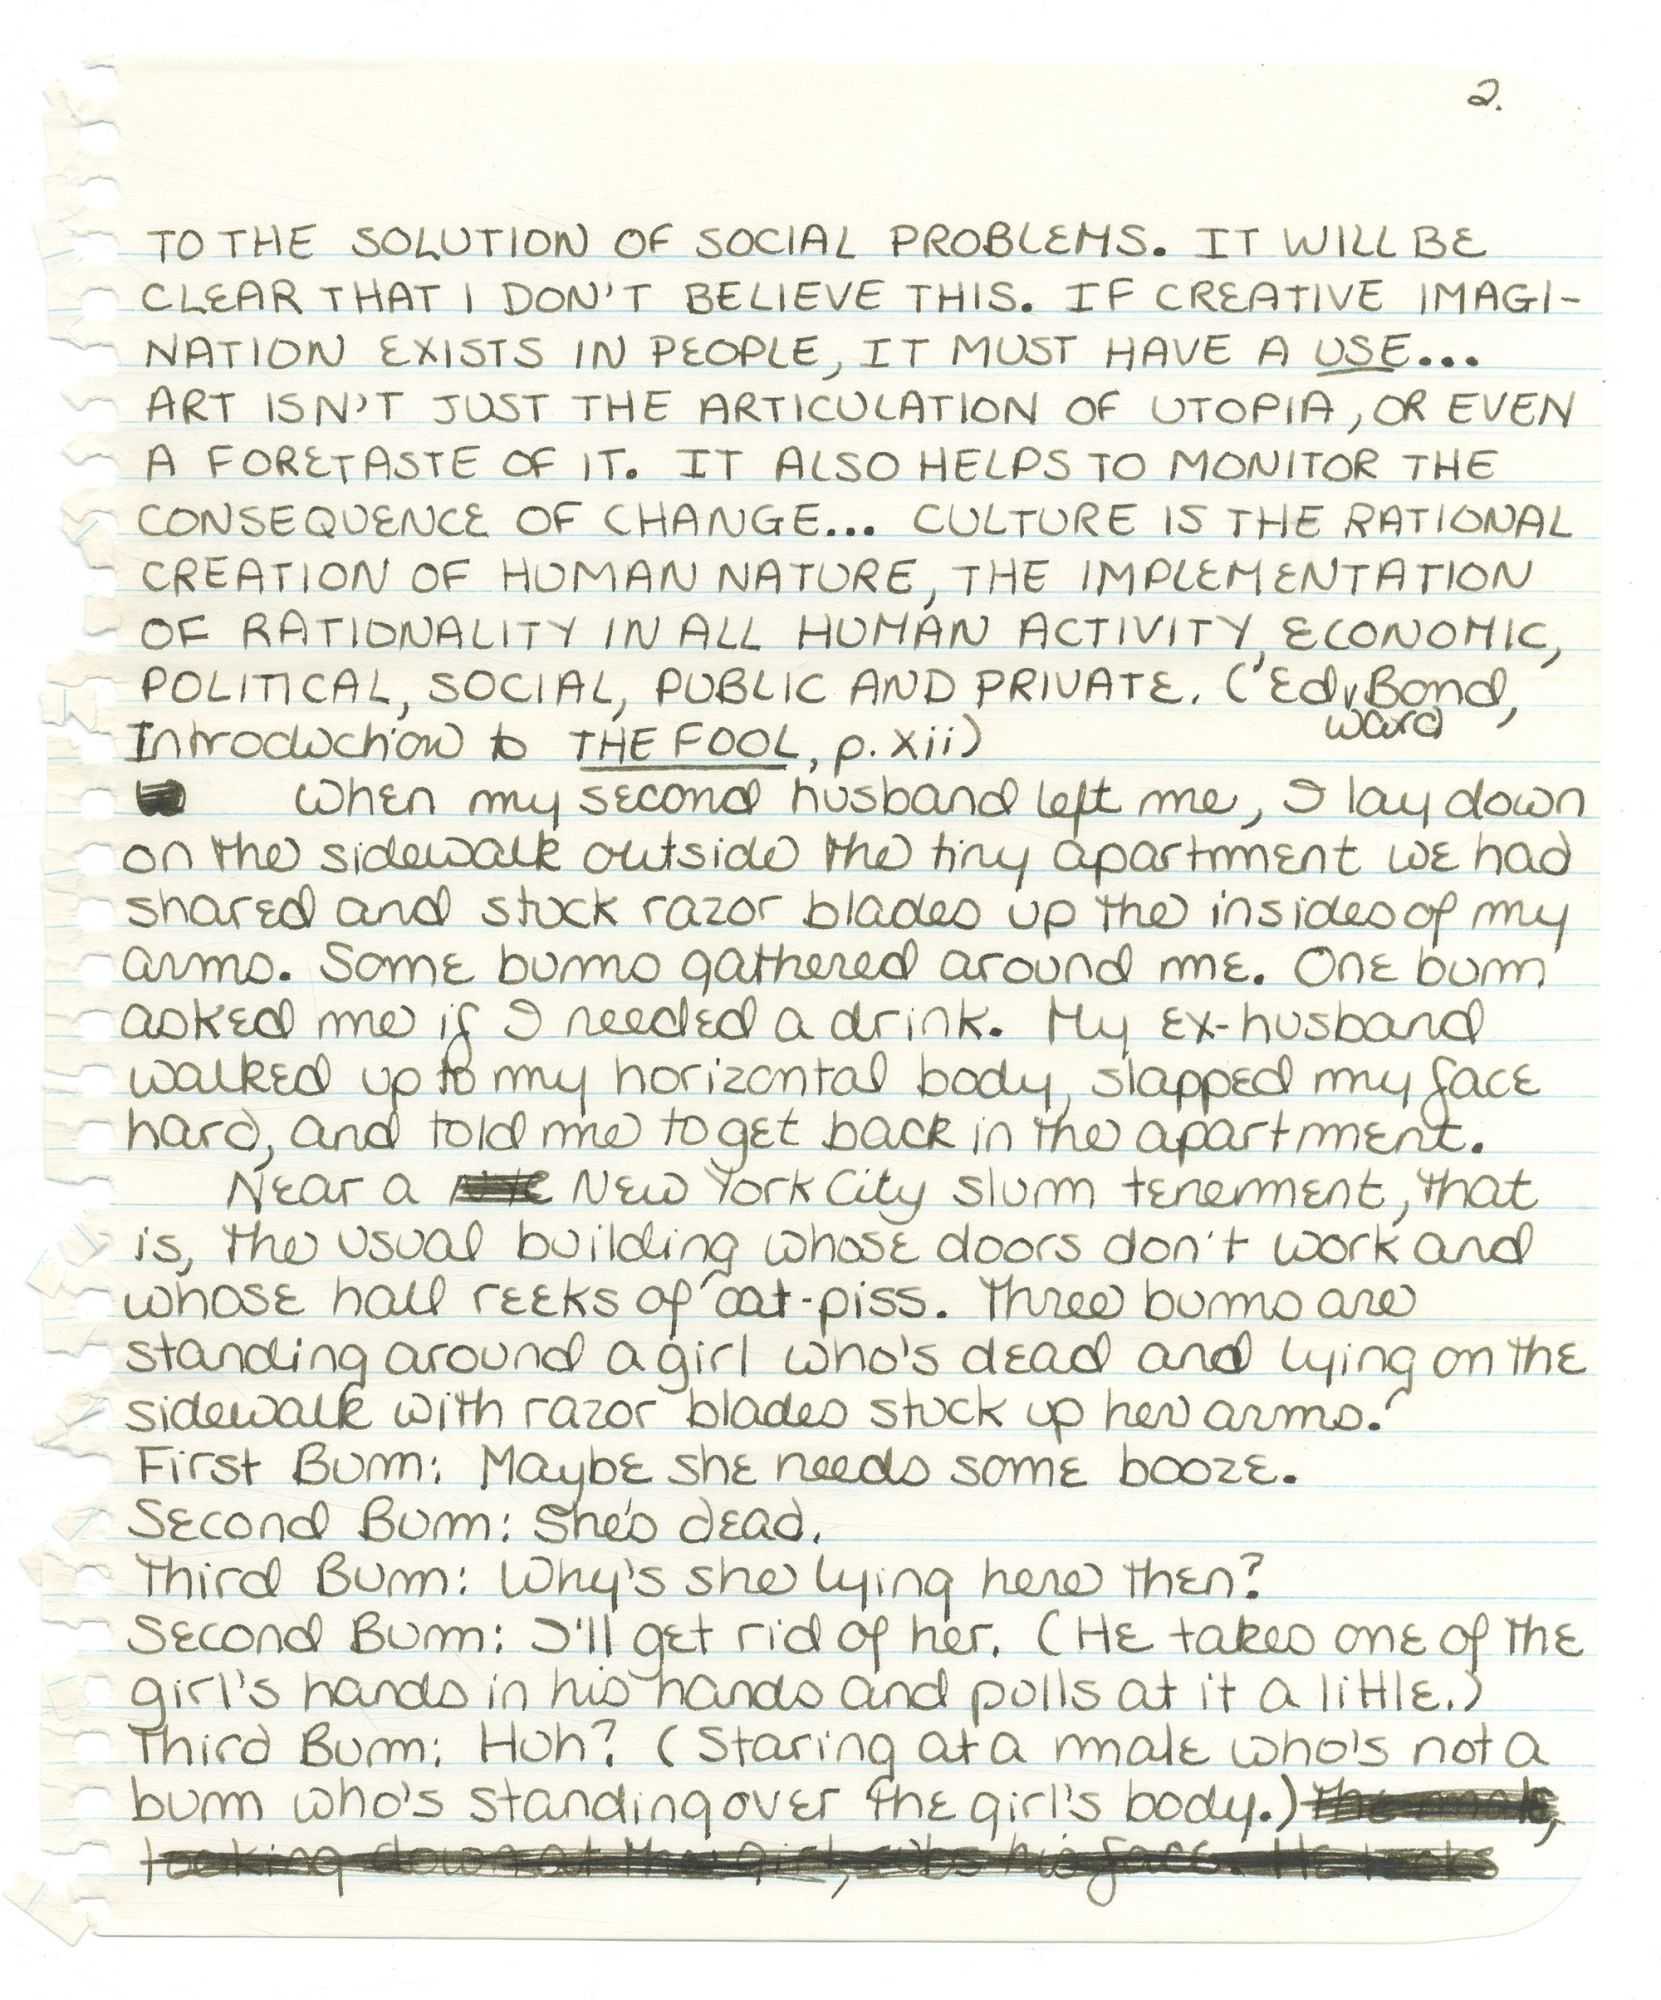 2.
TO THE SOLUTION OF SOCIAL PROBLEMS. IT WILL BE
CLEAR THAT I DON'T BELIEVE THIS. IF CREATIVE IMAGI-
NATION EXISTS IN PEOPLE, IT MUST HAVE A USE...
ART ISN'T JUST THE ARTICULATION OF UTOPIA, OR EVEN
A FORETASTE OF IT. IT ALSO HELPS TO MONITOR THE
CONSEQUENCE OF CHANGE... CULTURE IS THE RATIONAL
CREATION OF HUMAN NATURE, THE IMPLEMENTATION
OF RATIONALITY IN ALL HUMAN ACTIVITY, ECONOMIC,
POLITICAL, SOCIAL, PUBLIC AND PRIVATE. ('Edward Bond,
Introduction to THE FOOL, p. xii)
When my second husband left me, I lay down
on the sidewalk outside the tiny apartment we had
shared and stuck razor blades up the insides of my
arms. Some bums gathered around me. One bum
asked me if I needed a drink. My ex-husband
walked up to my horizontal body, slapped my face
hard, and told me to get back in the apartment.
Near a New York City slum tenement, that
is, the usual building whose doors don't work and
whose hall reeks of cat-piss. Three bums are
standing around a girl who's dead and lying on the
sidewalk with razor blades stuck up her arms.
First Bum: Maybe she needs some booze.
Second Bum: She's dead.
Third Bum: Why's she lying here then?
Second Bum: I'll get rid of her. (He takes one of the
girl's hands in his hands and pulls at it a little.)
Third Bum: Huh? (Staring at a male who's not a
bum who's standing over the girl's body.) the male,
looking down at the girl, rubs his face. He looks